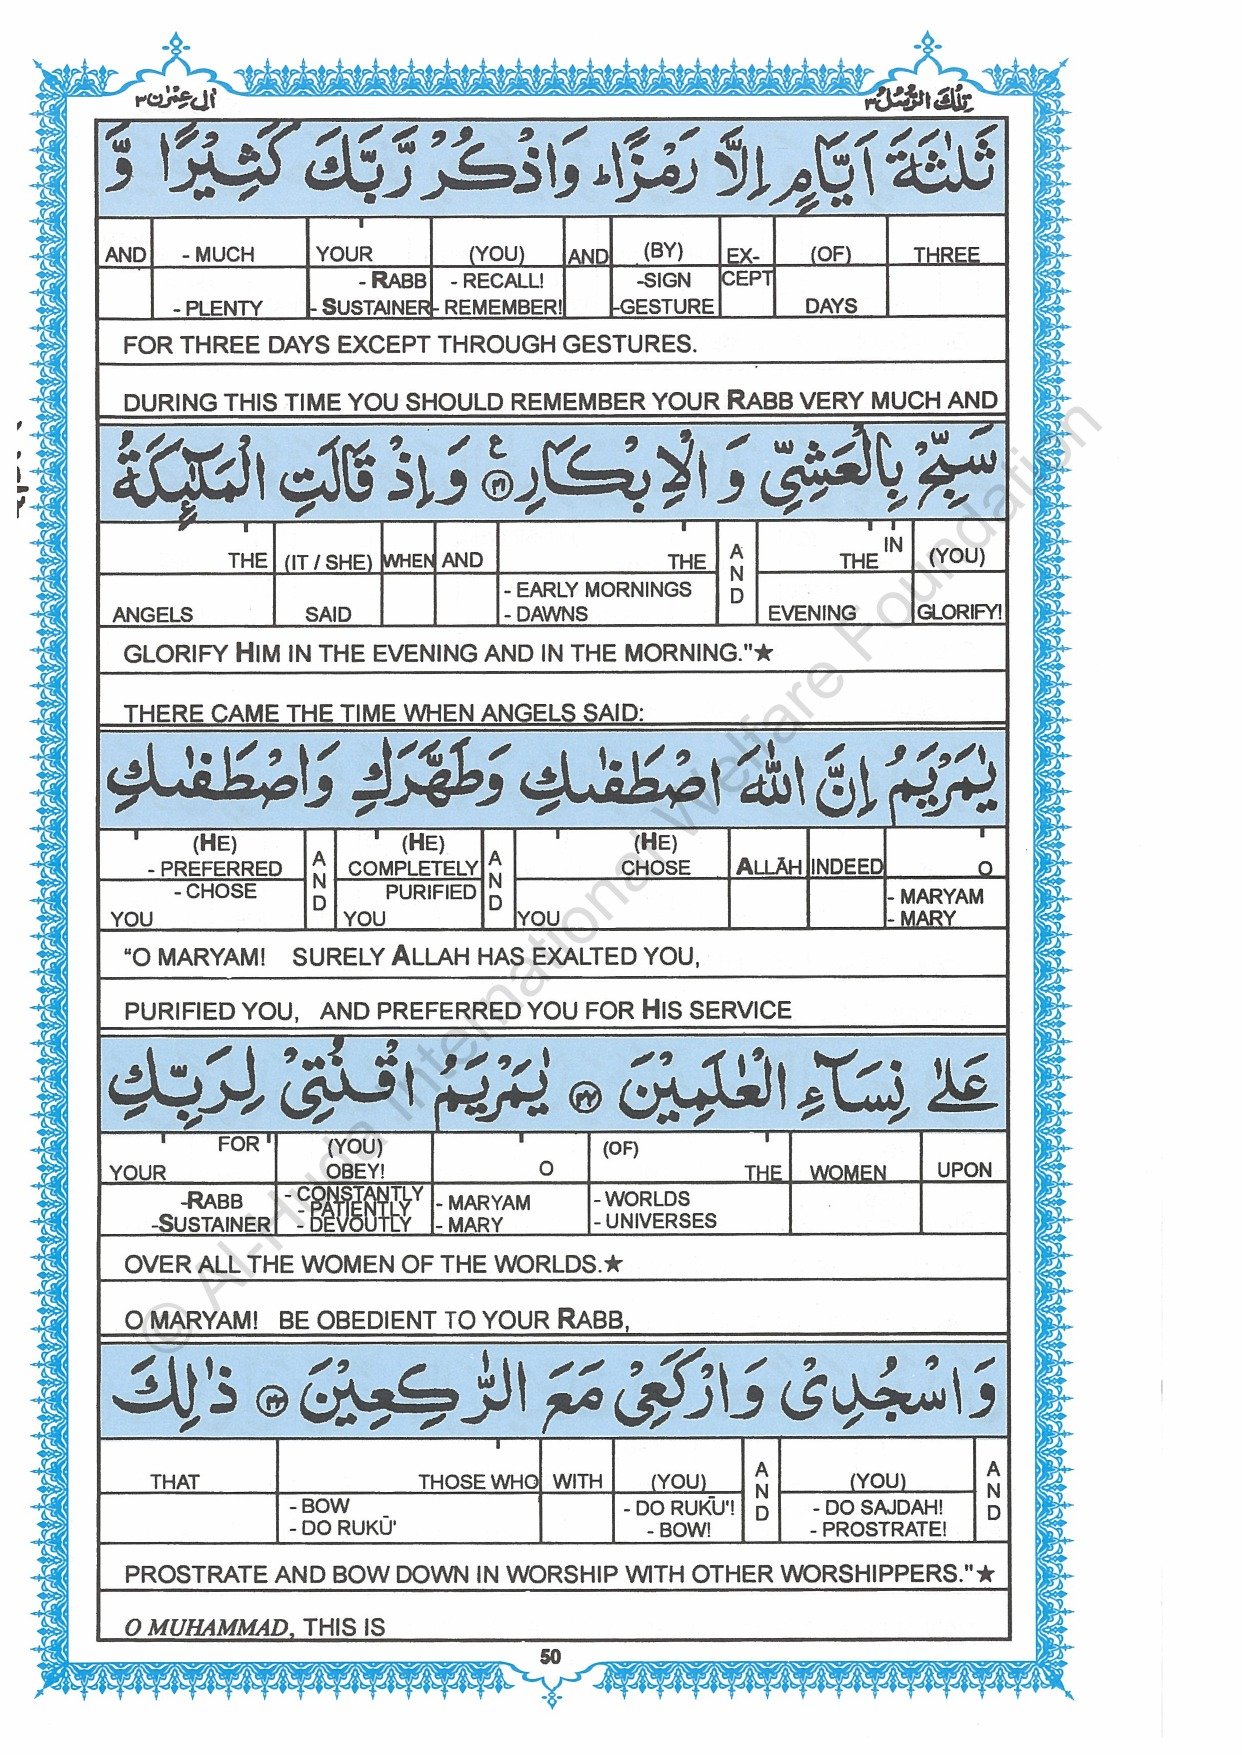 تِلْكَ الرُّسُلُ ٣ اٰلِ عِمْرٰن ٣
ثَلٰثَةَ اَيَّامٍ اِلَّا رَمْزًا ؕ وَاذْكُرْ رَّبَّكَ كَثِيْرًا وَّ
AND - MUCH YOUR (YOU) AND (BY) EX- (OF) THREE
- RABB - RECALL! -SIGN CEPT
- PLENTY - SUSTAINER - REMEMBER! -GESTURE DAYS
FOR THREE DAYS EXCEPT THROUGH GESTURES.
DURING THIS TIME YOU SHOULD REMEMBER YOUR RABB VERY MUCH AND
سَبِّحْ بِالْعَشِيِّ وَ الْاِبْكَارِ ﴿٤١﴾ ع وَ اِذْ قَالَتِ الْمَلٰٓئِكَةُ
THE (IT / SHE) WHEN AND THE AND THE IN (YOU)
- EARLY MORNINGS
ANGELS SAID - DAWNS EVENING GLORIFY!
GLORIFY HIM IN THE EVENING AND IN THE MORNING."★
THERE CAME THE TIME WHEN ANGELS SAID:
يٰمَرْيَمُ اِنَّ اللّٰهَ اصْطَفٰىكِ وَطَهَّرَكِ وَاصْطَفٰىكِ
(HE) AND (HE) AND (HE)
- PREFERRED COMPLETELY CHOSE ALLĀH INDEED O
- CHOSE PURIFIED - MARYAM
YOU YOU YOU - MARY
“O MARYAM! SURELY ALLAH HAS EXALTED YOU,
PURIFIED YOU, AND PREFERRED YOU FOR HIS SERVICE
عَلٰى نِسَآءِ الْعٰلَمِيْنَ ﴿٤٢﴾ يٰمَرْيَمُ اقْنُتِيْ لِرَبِّكِ
FOR (YOU) (OF)
YOUR OBEY! O THE WOMEN UPON
-RABB - CONSTANTLY - MARYAM - WORLDS
- PATIENTLY
-SUSTAINER - DEVOUTLY - MARY - UNIVERSES
OVER ALL THE WOMEN OF THE WORLDS.★
O MARYAM! BE OBEDIENT TO YOUR RABB,
وَ اسْجُدِيْ وَارْكَعِيْ مَعَ الرّٰكِعِيْنَ ﴿٤٣﴾ ذٰلِكَ
THAT THOSE WHO WITH (YOU) AND (YOU) AND
- BOW - DO RUKŪ'! - DO SAJDAH!
- DO RUKŪ' - BOW! - PROSTRATE!
PROSTRATE AND BOW DOWN IN WORSHIP WITH OTHER WORSHIPPERS."★
O MUHAMMAD, THIS IS
50
© Al-Huda International Welfare Foundation